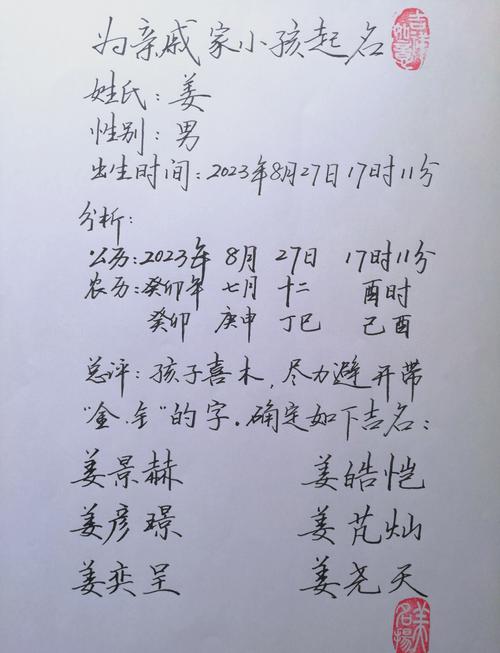 为亲戚家小孩起名
姓氏：姜
性别：男
出生时间：2023年8月27日17时11分
分析：
公历：2023年 8月 27日 17时11分
农历：癸卯年 七月 十二 酉时
癸卯 庚申 丁巳 己酉
总评：孩子喜木，尽力避开带
“金.钅”的字。确定如下吉名：
姜景赫 姜皓恺
姜彦璟 姜芃灿
姜奕呈 姜尧天
美名扬